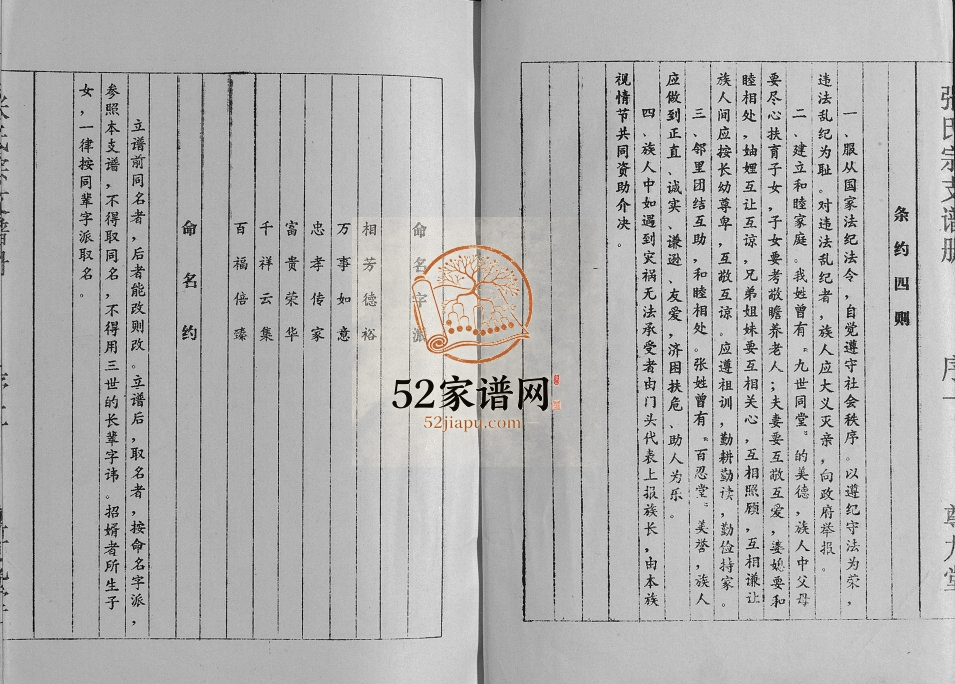 张氏宗支谱册
序一
条约四则
一、服从国家法纪法令，自觉遵守社会秩序。以遵纪守法为荣，
违法乱纪为耻。对违法乱纪者，族人应大义灭亲，向政府举报。
二、建立和睦家庭。我姓曾有“九世同堂”的美德，族人中父母
要尽心扶育子女，子女要孝敬赡养老人；夫妻要互敬互爱，婆媳要和
睦相处，妯娌互让互谅，兄弟姐妹要互相关心，互相照顾，互相谦让
族人间应按长幼尊卑，互敬互谅。应遵祖训，勤耕勤读，勤俭持家。
三、邻里团结互助，和睦相处。张姓曾有“百忍堂”美誉，族人
应做到正直、诚实、谦逊、友爱，济困扶危、助人为乐。
四、族人中如遇到灾祸无法承受者由门头代表上报族长，由本族
视情节共同资助介决。
命名字派
相芳德裕
万事如意
忠孝传家
富贵荣华
千祥云集
百福倍臻
命名约
立谱前同名者，后者能改则改。立谱后，取名者，按命名字派，
参照本支谱，不得取同名，不得用三世的长辈字讳。招婿者所生子
女，一律按同辈字派取名。
52家谱网
52jiapu.com